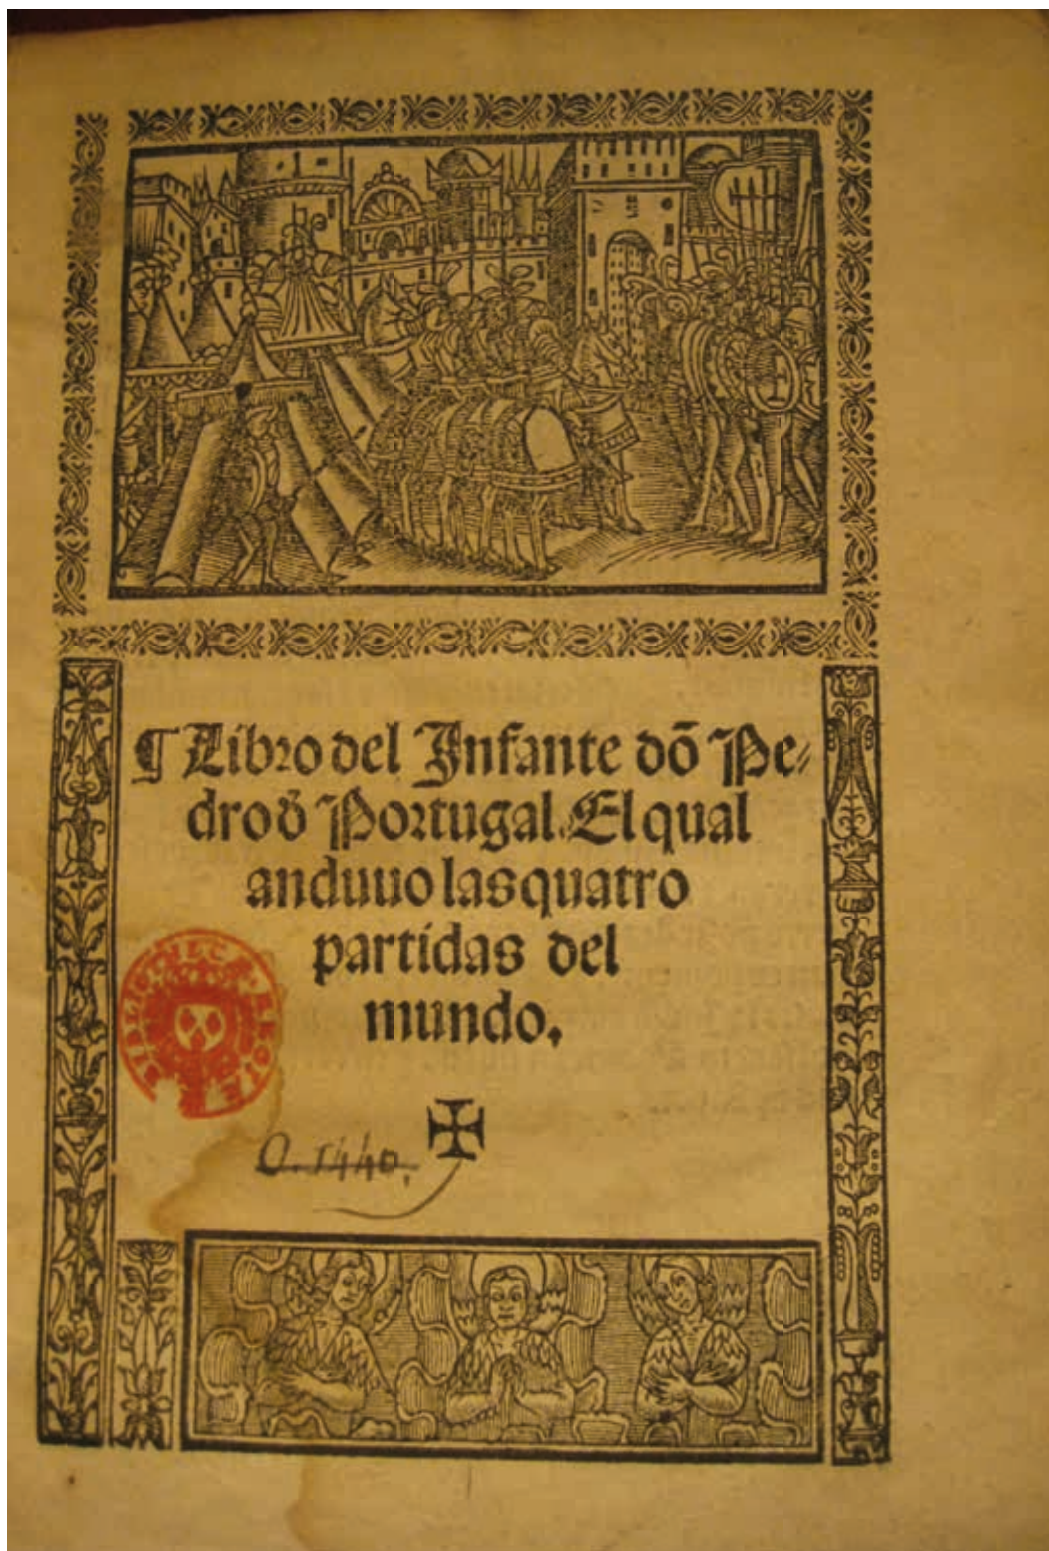 ¶ Libro del Infante dõ Pe⸗
dro đ Portugal. El qual
anduuo las quatro
partidas del
mundo.
O. 1440.